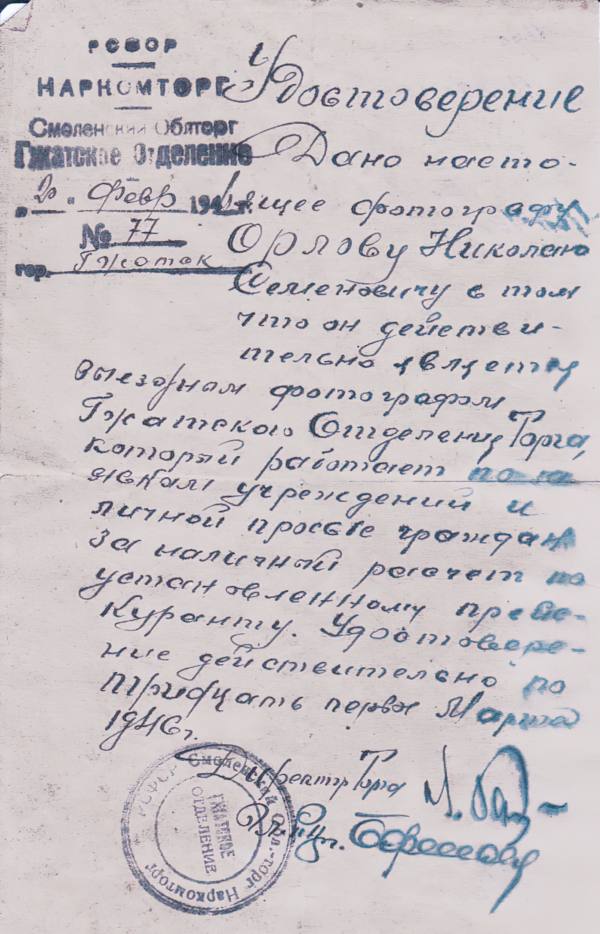 РСФСР
НАРКОМТОРГ
Смоленский Облторг
Гжатское Отделение
"20" Февр 1946г.
№ 77
гор. Гжатск
Удостоверение
Дано насто-
ящее фотографу
Орлову Николаю
Семеновичу в том
что он действи-
тельно является
выездным фотографом
Гжатского Отделения Торга,
который работает по за
явкам учреждений и
личной просьбе граждан
за наличный расчет по
установленному прейс-
куранту. Удостовере-
ние действительно по
тридцать первое Марта
1946г.
Директор Торга
РСФСР Смоленский
торг Наркомторг
ГЖАТСКОЕ
ОТДЕЛЕНИЕ